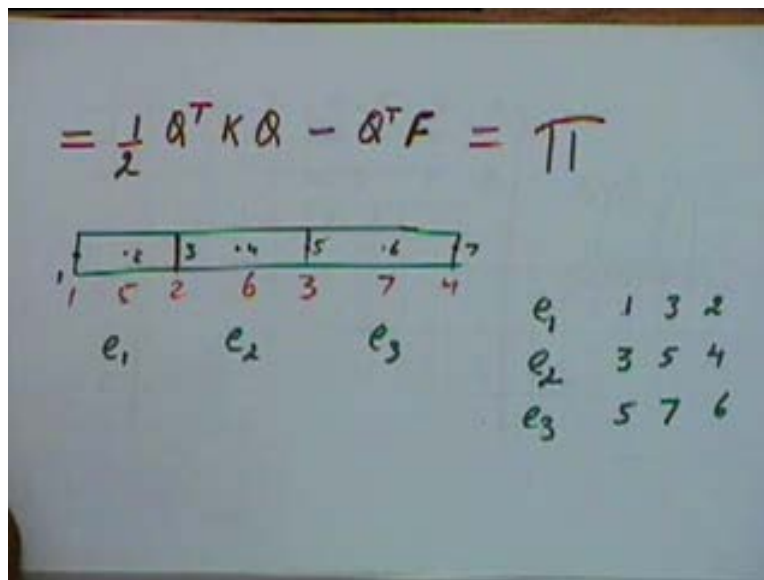 = 1/2 Q^T K Q - Q^T F = Π
1 ·2 3 ·4 5 ·6 7
1 5 2 6 3 7 4
e₁ e₂ e₃
e₁ 1 3 2
e₂ 3 5 4
e₃ 5 7 6